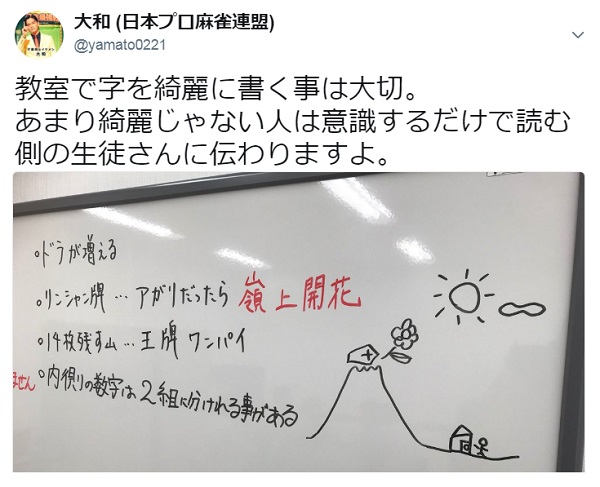 大和 (日本プロ麻雀連盟)
@yamato0221
教室で字を綺麗に書く事は大切。
あまり綺麗じゃない人は意識するだけで読む
側の生徒さんに伝わりますよ。
ドラが増える
リンシャン牌…アガリだったら 嶺上開花
14枚残す山…王牌 ワンパイ
ません
内側の数字は2組に分けれる事がある